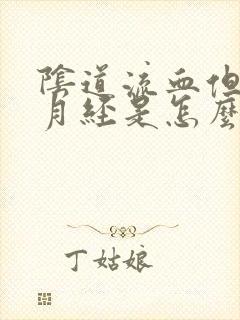 陰道流血但
月經是怎麼
丁姑娘